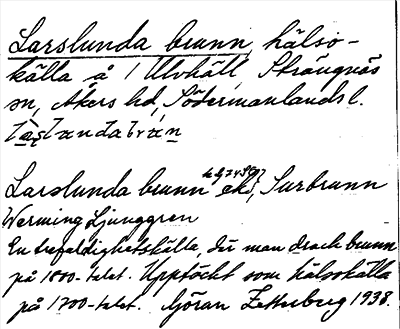 Larslunda brunn, hälso-
källa å / Ulvhäll, Strängnäs
sn, Åkers hd, Södermanlands l.
Larslunda brunn ek, Surbrunn
Werming Ljunggren
En trefaldighetskälla, där man drack brunn
på 1800-talet. Upptäckt som hälsokälla
på 1700-talet. Göran Zetterberg 1938.